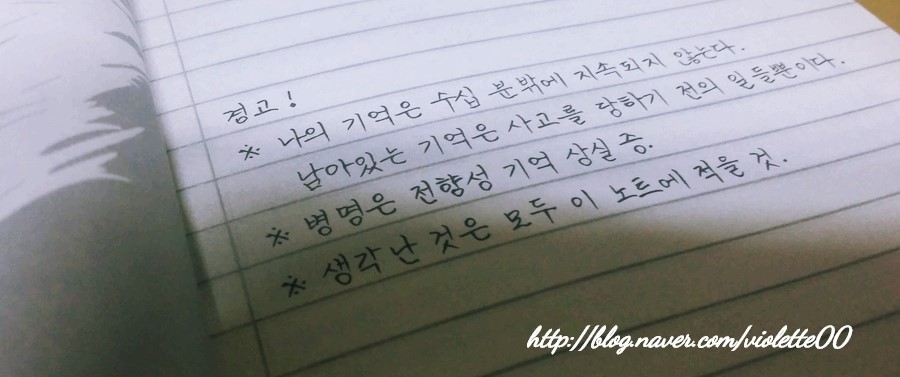 경고!
※ 나의 기억은 수십 분밖에 지속되지 않는다.
남아있는 기억은 사고를 당하기 전의 일들뿐이다.
※ 병명은 전향성 기억 상실 증.
※ 생각난 것은 모두 이 노트에 적을 것.
http://blog.naver.com/violette00